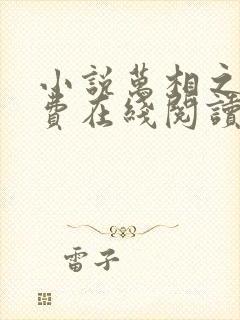 小說萬相之
費在綫閱讀
雷子